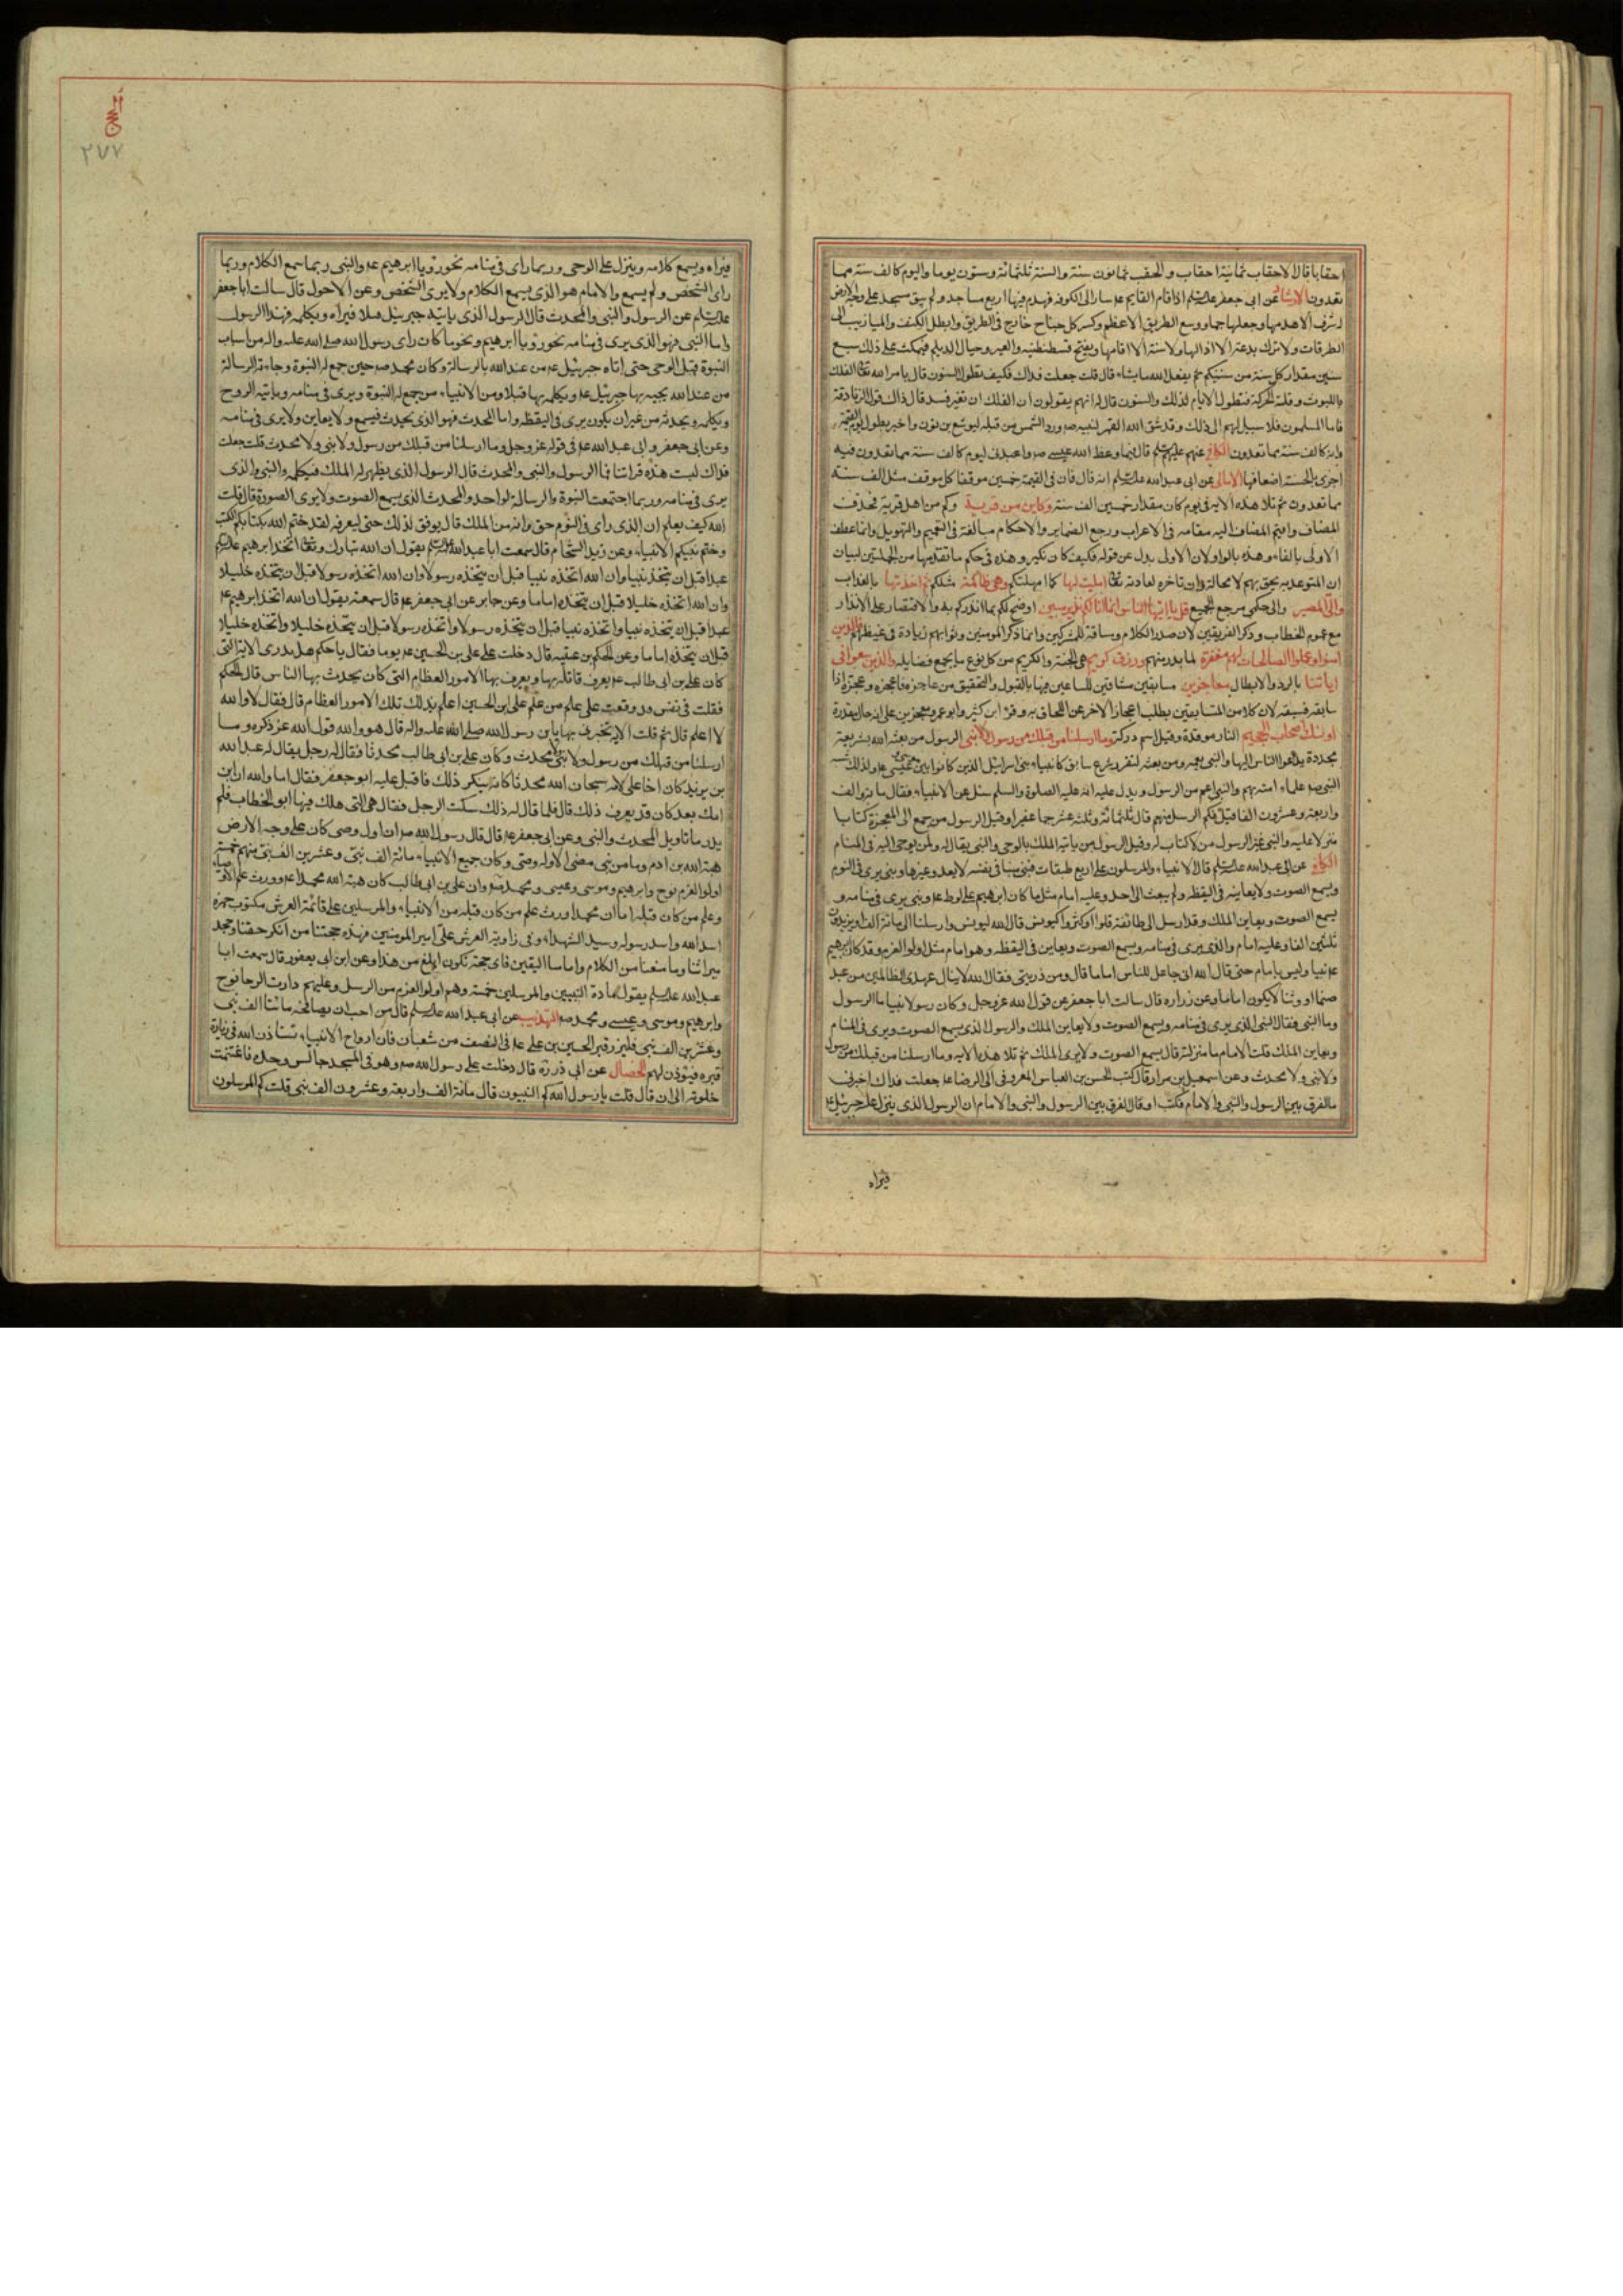 احقابا قال الاحقاب ثمانية احقاب والحقب ثمانون سنة والسنة ثلثمائة وستون يوما واليوم كالف سنة مما
تعدون الارشاد عن ابى جعفر عليه السلم اذا قام القايم عم سار الى الكوفه فهدم فيها اربع مساجد ولم يبق مسجد على وجه الارض
له شرف الا هدمها وجعلها جما ووسع الطريق الاعظم وكسر كل جناح خارج فى الطريق وابطل الكنف والميازيب الى
الطرقات ولا يترك بدعة الا ازالها ولا سنة الا اقامها ويفتح قسطنطنيه والصين وجبال الديلم فيمكث على ذلك سبع
سنين مقدار كل سنة من سنيكم ثم يفعل الله ما يشاء قال قلت جعلت فداك فكيف تطول السنون قال يامر الله تعا الفلك
باللبوث وقلة الحركة فتطول الايام لذلك والسنون قال له انهم يقولون ان الفلك ان تغير فسد قال ذاك قول الزنادقة
فاما المسلمون فلا سبيل لهم الى ذلك وقد شق الله القمر لنبيه صم ورد الشمس من قبله ليوشع بن نون واخبر بطول يوم القيمة
وانه كالف سنة مما تعدون الكافى عنهم عليهم السلم قال فيما وعظ الله عيسى صم واعبدنى ليوم كالف سنة مما تعدون فيه
اجزى بالحسنة اضعافها الامالى عن ابى عبد الله عليه السلم انه قال فان فى القيمة خمسين موقفا كل موقف مثل الف سنة
مما تعدون ثم تلا هذه الاية فى يوم كان مقداره خمسين الف سنة وكاين من قرية وكم من اهل قرية فحذف
المضاف واقيم المضاف اليه مقامه فى الاعراب ورجع الضماير والاحكام مبالغة فى التعميم والتهويل وانما عطف
الاولى بالفاء وهذه بالواو لان الاولى بدل عن قوله فكيف كان نكير وهذه فى حكم ما تقدمها من الجملتين لبيان
ان المتوعد به يحيق بهم لا محالة وان تاخره لعادته تعا امليت لها كما امهلتكم وهى ظالمة مثلكم ثم اخذتها بالعذاب
والى المصير والى حكمى مرجع الجميع قل يا ايها الناس انما انا لكم نذير مبين اوضح لكم بما انذركم به والاقتصار على الانذار
مع عموم الخطاب وذكر الفريقين لان صدر الكلام ومساقه للمشركين وانما ذكر المومنين وثوابهم زيادة فى غيظهم فالذين
امنوا وعملوا الصالحات لهم مغفرة لما بدر منهم ورزق كريم هى الجنة والكريم من كل نوع ما يجمع فضايله والذين سعوا فى
اياتنا بالرد والابطال معاجزين مسابقين مشاقين للساعين فيها بالقبول والتحقيق من عاجزه فاعجزه وعجزه اذا
سابقه فسبقه لان كلا من المتسابقين يطلب اعجاز الاخر عن اللحاق به وقرء ابن كثير وابو عمرو معجزين على انه حال مقدرة
اولئك اصحاب الجحيم النار موقدة وقيل اسم دركة وما ارسلنا من قبلك من رسول ولا نبى الرسول من بعثه الله بشريعة
مجددة يدعوا الناس اليها والنبى يعمه ومن بعثه لتقرير شرع سابق كانبياء بنى اسرائيل الذين كانوا بين موسى وعيسى عم ولذلك شبه
النبى صم علماء امته بهم والنبى اعم من الرسول ويدل عليه انه عليه الصلوة والسلم سئل عن الانبياء فقال مائة الف
واربعة وعشرون الفا قيل فكم الرسل منهم قال ثلثمائة وثلثة عشر جما غفيرا وقيل الرسول من جمع الى المعجزة كتابا
منزلا عليه والنبى غير الرسول من لا كتاب له وقيل الرسول من ياتيه الملك بالوحى والنبى يقال له ولمن يوحى اليه فى المنام
الكافى عن ابى عبد الله عليه السلم قال الانبياء والمرسلون على اربع طبقات فنبى منبا فى نفسه لا يعدو غيرها ونبى يرى فى النوم
ويسمع الصوت ولا يعاينه فى اليقظه ولم يبعث الى احد وعليه امام مثل ما كان ابرهيم على لوط عم ونبى يرى فى منامه و
يسمع الصوت ويعاين الملك وقد ارسل الى طائفة قلوا او كثروا كيونس قال الله ليونس وارسلناه الى مائة الف او يزيدون
ثلثين الفا وعليه امام والذى يرى فى منامه ويسمع الصوت ويعاين فى اليقظه وهو امام مثل اولوا العزم وقد كان ابرهيم
عم نبيا وليس بامام حتى قال الله انى جاعل للناس اماما قال ومن ذريتى فقال الله لا ينال عهدى الظالمين من عبد
صنما او وثنا لا يكون اماما وعن زراره قال سالت ابا جعفر عن قول الله عز وجل وكان رسولا نبيا ما الرسول
وما النبى فقال النبى الذى يرى فى منامه ويسمع الصوت ولا يعاين الملك والرسول الذى يسمع الصوت ويرى فى المنام
ويعاين الملك قلت الامام ما منزلته قال يسمع الصوت ولا يرى الملك ثم تلا هذه الايه وما ارسلنا من قبلك من رسول
ولا نبى ولا محدث وعن اسمعيل بن مرار قال كتب الحسن بن العباس المعروفى الى الرضا عم جعلت فداك اخبرنى
ما الفرق بين الرسول والنبى والامام فكتب او قال الفرق بين الرسول والنبى والامام ان الرسول الذى ينزل عليه جبرئيل عم
فيراه
٢٧٧
فيراه ويسمع كلامه وينزل عليه الوحى وربما راى فى منامه نحو رؤيا ابرهيم عم والنبى ربما سمع الكلام وربما
راى الشخص ولم يسمع والامام هو الذى يسمع الكلام ولا يرى الشخص وعن الاحول قال سالت ابا جعفر
عليه السلم عن الرسول والنبى والمحدث قال الرسول الذى ياتيه جبرئيل قبلا فيراه ويكلمه فهذا الرسول
واما النبى فهو الذى يرى فى منامه نحو رؤيا ابرهيم ونحو ما كان راى رسول الله صلى الله عليه واله من اسباب
النبوة قبل الوحى حتى اتاه جبرئيل عم من عند الله بالرسالة وكان محمد صم حين جمع له النبوة وجاءته الرسالة
من عند الله يجيه بها جبرئيل عم ويكلمه بها قبلا ومن الانبياء من جمع له النبوة ويرى فى منامه وياتيه الروح
ويكلمه ويحدثه من غير ان يكون يرى فى اليقظه واما المحدث فهو الذى يحدث فيسمع ولا يعاين ولا يرى فى منامه
وعن ابى جعفر وابى عبد الله عم فى قوله عز وجل وما ارسلنا من قبلك من رسول ولا نبى ولا محدث قلت جعلت
فداك ليست هذه قرائتنا فما الرسول والنبى والمحدث قال الرسول الذى يظهر له الملك فيكلمه والنبى هو الذى
يرى فى منامه وربما اجتمعت النبوة والرسالة لواحد والمحدث الذى يسمع الصوت ولا يرى الصورة قال قلت
الله كيف يعلم ان الذى راى فى النوم حق وانه من الملك قال يوفق لذلك حتى يعرفه لقد ختم الله بكتابكم الكتب
وختم بنبيكم الانبياء وعن زيد الشحام قال سمعت ابا عبد الله عليه السلم يقول ان الله تبارك وتعا اتخذ ابرهيم عليه السلم
عبدا قبل ان يتخذه نبيا وان الله اتخذه نبيا قبل ان يتخذه رسولا وان الله اتخذه رسولا قبل ان يتخذه خليلا
وان الله اتخذه خليلا قبل ان يتخذه اماما وعن جابر عن ابى جعفر عم قال سمعته يقول ان الله اتخذ ابرهيم عم
عبدا قبل ان يتخذه نبيا واتخذه نبيا قبل ان يتخذه رسولا واتخذه رسولا قبل ان يتخذه خليلا واتخذه خليلا
قبل ان يتخذه اماما وعن الحكم بن عتيبه قال دخلت على على بن الحسين عم يوما فقال يا حكم هل تدرى الاية التى
كان على بن ابى طالب عم يعرف قاتله بها ويعرف بها الامور العظام التى كان يحدث بها الناس قال الحكم
فقلت فى نفسى قد وقعت على علم من علم على ابن الحسين اعلم بذلك تلك الامور العظام قال فقال لا والله
لا اعلم قال ثم قلت الاية تخبرنى بها يا بن رسول الله صلى الله عليه واله قال هو والله قول الله عز ذكره وما
ارسلنا من قبلك من رسول ولا نبى ولا محدث وكان على بن ابى طالب محدثا فقال له رجل يقال له عبد الله
بن زيد كان اخا على لامه سبحان الله محدثا كانه ينكر ذلك فاقبل عليه ابو جعفر فقال اما والله ان ابن
امك بعد كان قد يعرف ذلك قال فلما قال له ذلك سكت الرجل فقال هى التى هلك فيها ابو الخطاب فلم
يدر ما تاويل المحدث والنبى وعن ابى جعفر عم قال قال رسول الله صم ان اول وصى كان على وجه الارض
هبة الله بن ادم وما من نبى مضى الا وله وصى وكان جميع الانبياء مائة الف نبى وعشرين الف نبى منهم خمسة
اولوا العزم نوح وابرهيم وموسى وعيسى ومحمد صم وان على بن ابى طالب كان هبة الله لمحمد عم وورث علم الاوصياء
وعلم من كان قبله اما ان محمدا ورث علم من كان قبله من الانبياء والمرسلين على قائمة العرش مكتوب حمزة
اسد الله واسد رسوله وسيد الشهداء وفى زاوية العرش على امير المومنين فهذه حجتنا من انكر حقنا وجحد
ميراثنا وما منعنا من الكلام وامامنا اليقين فاى حجة تكون ابلغ من هذا وعن ابن ابى يعفور قال سمعت ابا
عبد الله عليه السلم يقول سادة النبيين والمرسلين خمسة وهم اولوا العزم من الرسل وعليهم دارت الرحا نوح
وابرهيم وموسى وعيسى ومحمد صم التهذيب عن ابى عبد الله عليه السلم قال من احب ان يصافحه مائتا الف نبى
وعشرين الف نبى فليزر قبر الحسين بن على عم فى النصف من شعبان فان ارواح الانبياء تستاذن الله فى زيارة
قبره فيؤذن لهم الخصال عن ابى ذر ره قال دخلت على رسول الله صم وهو فى المسجد جالس وحده فاغتنمت
خلوته الى ان قال قلت يا رسول الله كم النبيون قال مائة الف واربعة وعشرون الف نبى قلت كم المرسلون